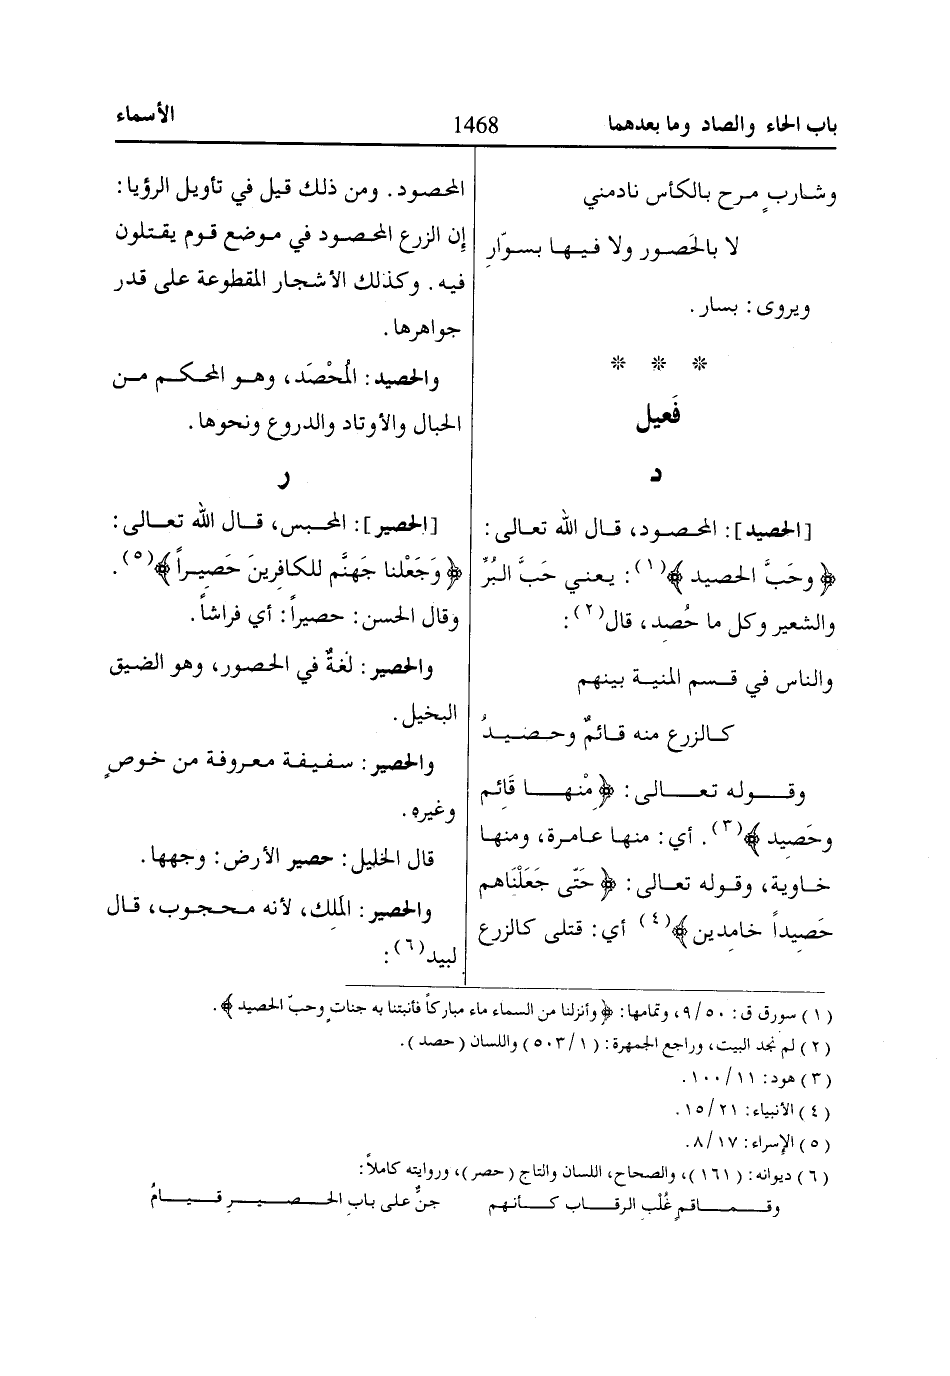 باب الحاء والصاد وما بعدهما
1468
الأسماء
وشاربٍ مرح بالكأس نادمني
لا بالحَصور ولا فيها بسوّارِ
ويروى: بسار.
* * *
فَعيل
د
[الحصيد]: المحصود، قال الله تعالى:
﴿وحَبَّ الحصيد﴾(١): يعني حَبَّ البُرِّ
والشعير وكل ما حُصد، قال(٢):
والناس في قسم المنية بينهم
كالزرع منه قائمٌ وحصيدُ
وقوله تعالى: ﴿مْنها قَائم
وحَصيد﴾(٣). أي: منها عامرة، ومنها
خاوية، وقوله تعالى: ﴿حَتّى جَعَلْنَاهم
حَصِيداً خامدِين﴾(٤) أي: قتلى كالزرع
المحصود. ومن ذلك قيل في تأويل الرؤيا:
إِن الزرع المحصود في موضع قوم يقتلون
فيه. وكذلك الأشجار المقطوعة على قدر
جواهرها.
والحصيد: المُحْصَد، وهو المحكم من
الحبال والأوتاد والدروع ونحوها.
ر
[الحصير]: المحبس، قال الله تعالى:
﴿وَجَعَلْنا جَهنَّم للكافرِينَ حَصِيراً﴾(٥).
وقال الحسن: حصيراً: أي فراشاً.
والحصير: لغةٌ في الحصور، وهو الضيق
البخيل.
والحصير: سفيفة معروفة من خوصٍ
وغيره.
قال الخليل: حصير الأرض: وجهها.
والحصير: المَلِك، لأنه محجوب، قال
لبيد(٦):
(١) سورق ق: ٥٠/٩، وتمامها: ﴿وأنزلنا من السماء ماء مباركاً فأنبتنا به جنات وحبّ الحصيد﴾.
(٢) لم نجد البيت، وراجع الجمهرة: (١/٥٠٣) واللسان (حصد).
(٣) هود: ١١/١٠٠.
(٤) الأنبياء: ٢١/١٥.
(٥) الإِسراء: ١٧/٨.
(٦) ديوانه: (١٦١)، والصحاح، اللسان والتاج (حصر)، وروايته كاملاً:
وقماقمٍ غُلْبِ الرقاب كأنهم جنٌّ على باب الحصيرِ قيامُ